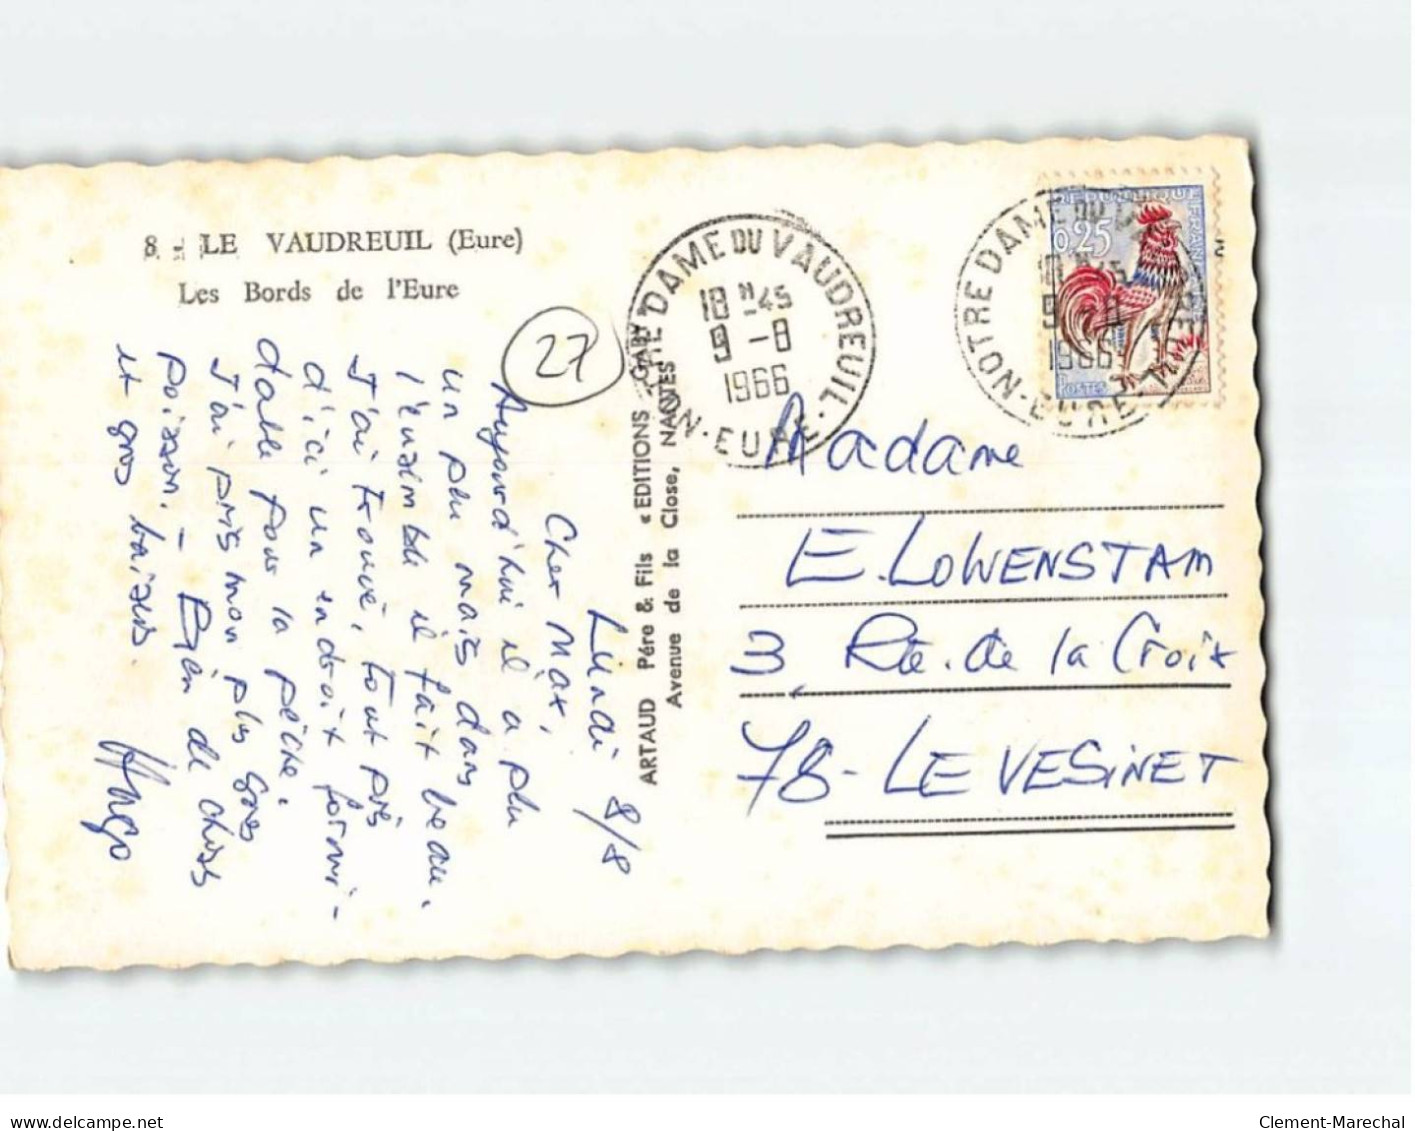 8 - LE VAUDREUIL (Eure)
Les Bords de l'Eure
27
Lundi 8/8
Cher Max,
Aujourd'hui il a plu
un peu mais dans
l'ensemble il fait beau.
J'ai trouvé, tout près
d'ici un endroit formi-
dable pour la pêche.
J'ai pris mon plus gros
poisson. - Bien de choses
et gros baisers.
ARTAUD Père & Fils « EDITIONS GABY »
Avenue de la Close, NANTES
NOTRE DAME DU VAUDREUIL
18 H 45
9 - 8
1966
EURE
NOTRE DAME DU
18 H 45
9 - 8
1966
EURE
0,25
POSTES
Madame
E. LOWENSTAM
3, Rte. de la Croix
78 - LE VESINET
www.delcampe.net
Clement-Marechal